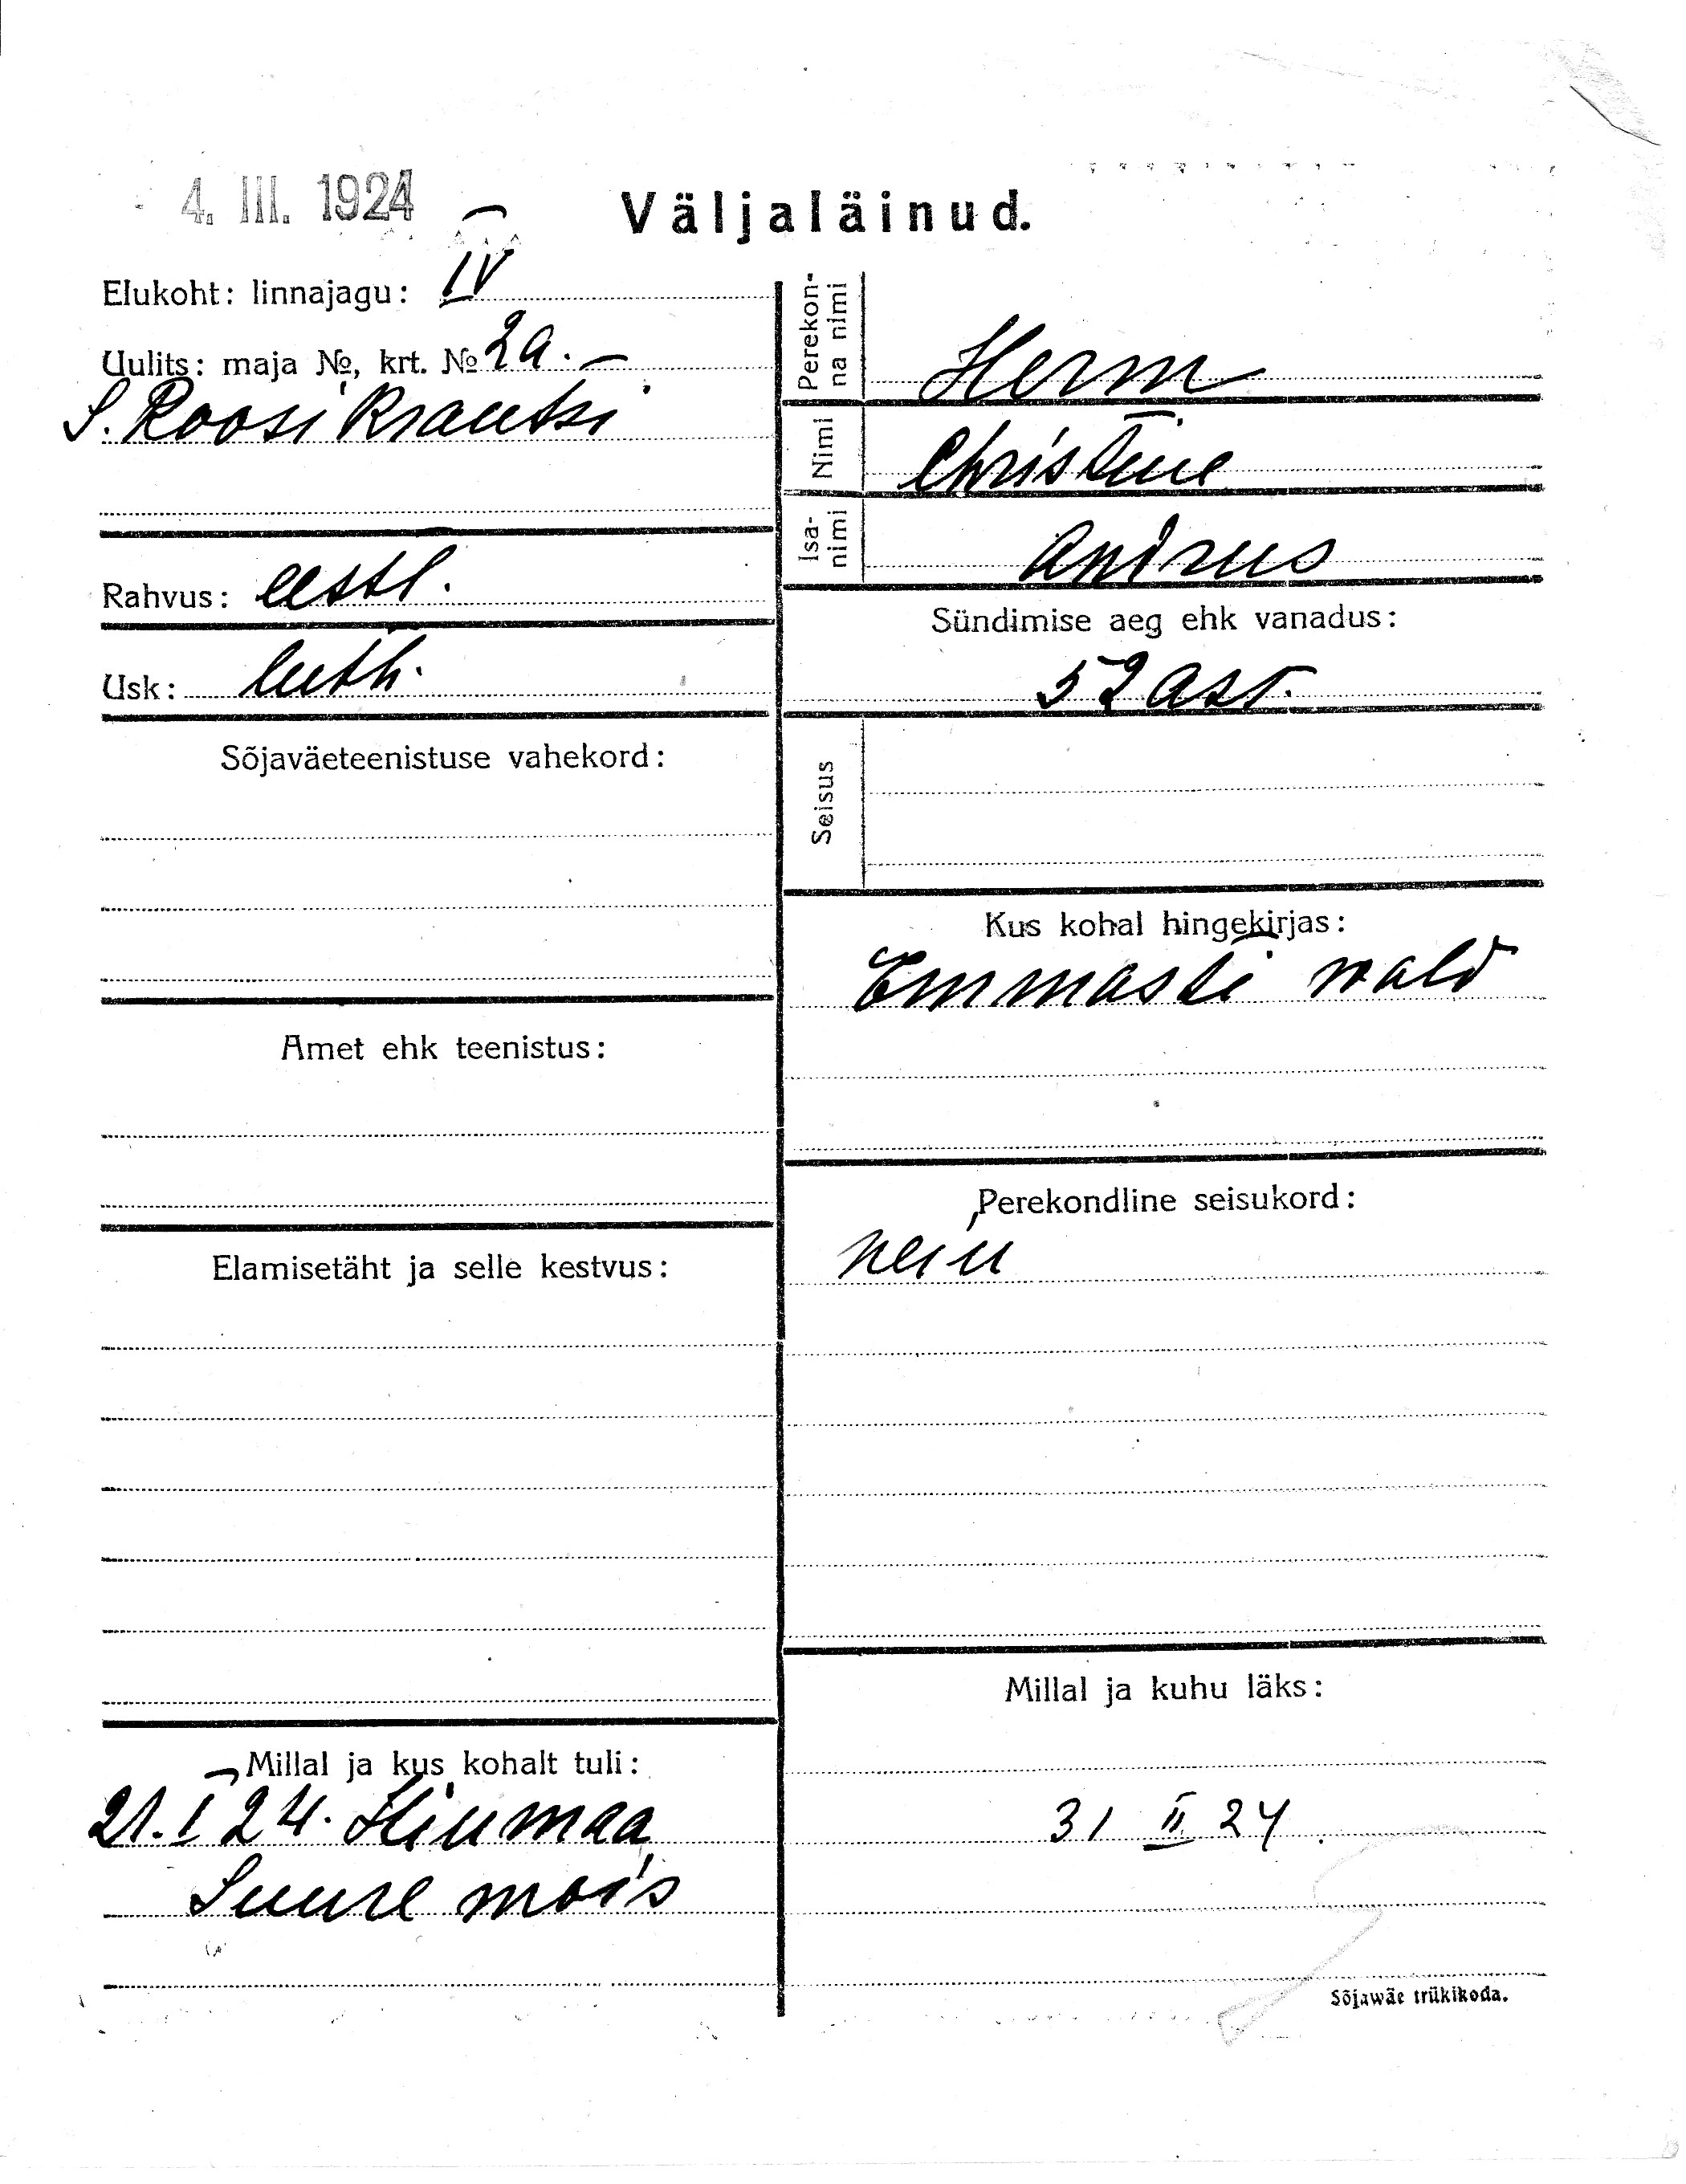 4. III. 1924
Väljaläinud.
Elukoht: linnajagu: IV
Uulits: maja №, krt. № 2a.
S. Roosi Krantsi
Rahvus: eestl.
Usk: luth.
Sõjaväeteenistuse vahekord:
Amet ehk teenistus:
Elamisetäht ja selle kestvus:
Millal ja kus kohalt tuli:
21. I 24. Hiumaa
Suure mois
Perekon-
na nimi
Herm
Nimi
Christine
Isa-
nimi
Andrus
Sündimise aeg ehk vanadus:
52 ast.
Seisus
Kus kohal hingekirjas:
Emmasti wald
Perekondline seisukord:
neiu
Millal ja kuhu läks:
31 II 24.
Sõjawäe trükikoda.